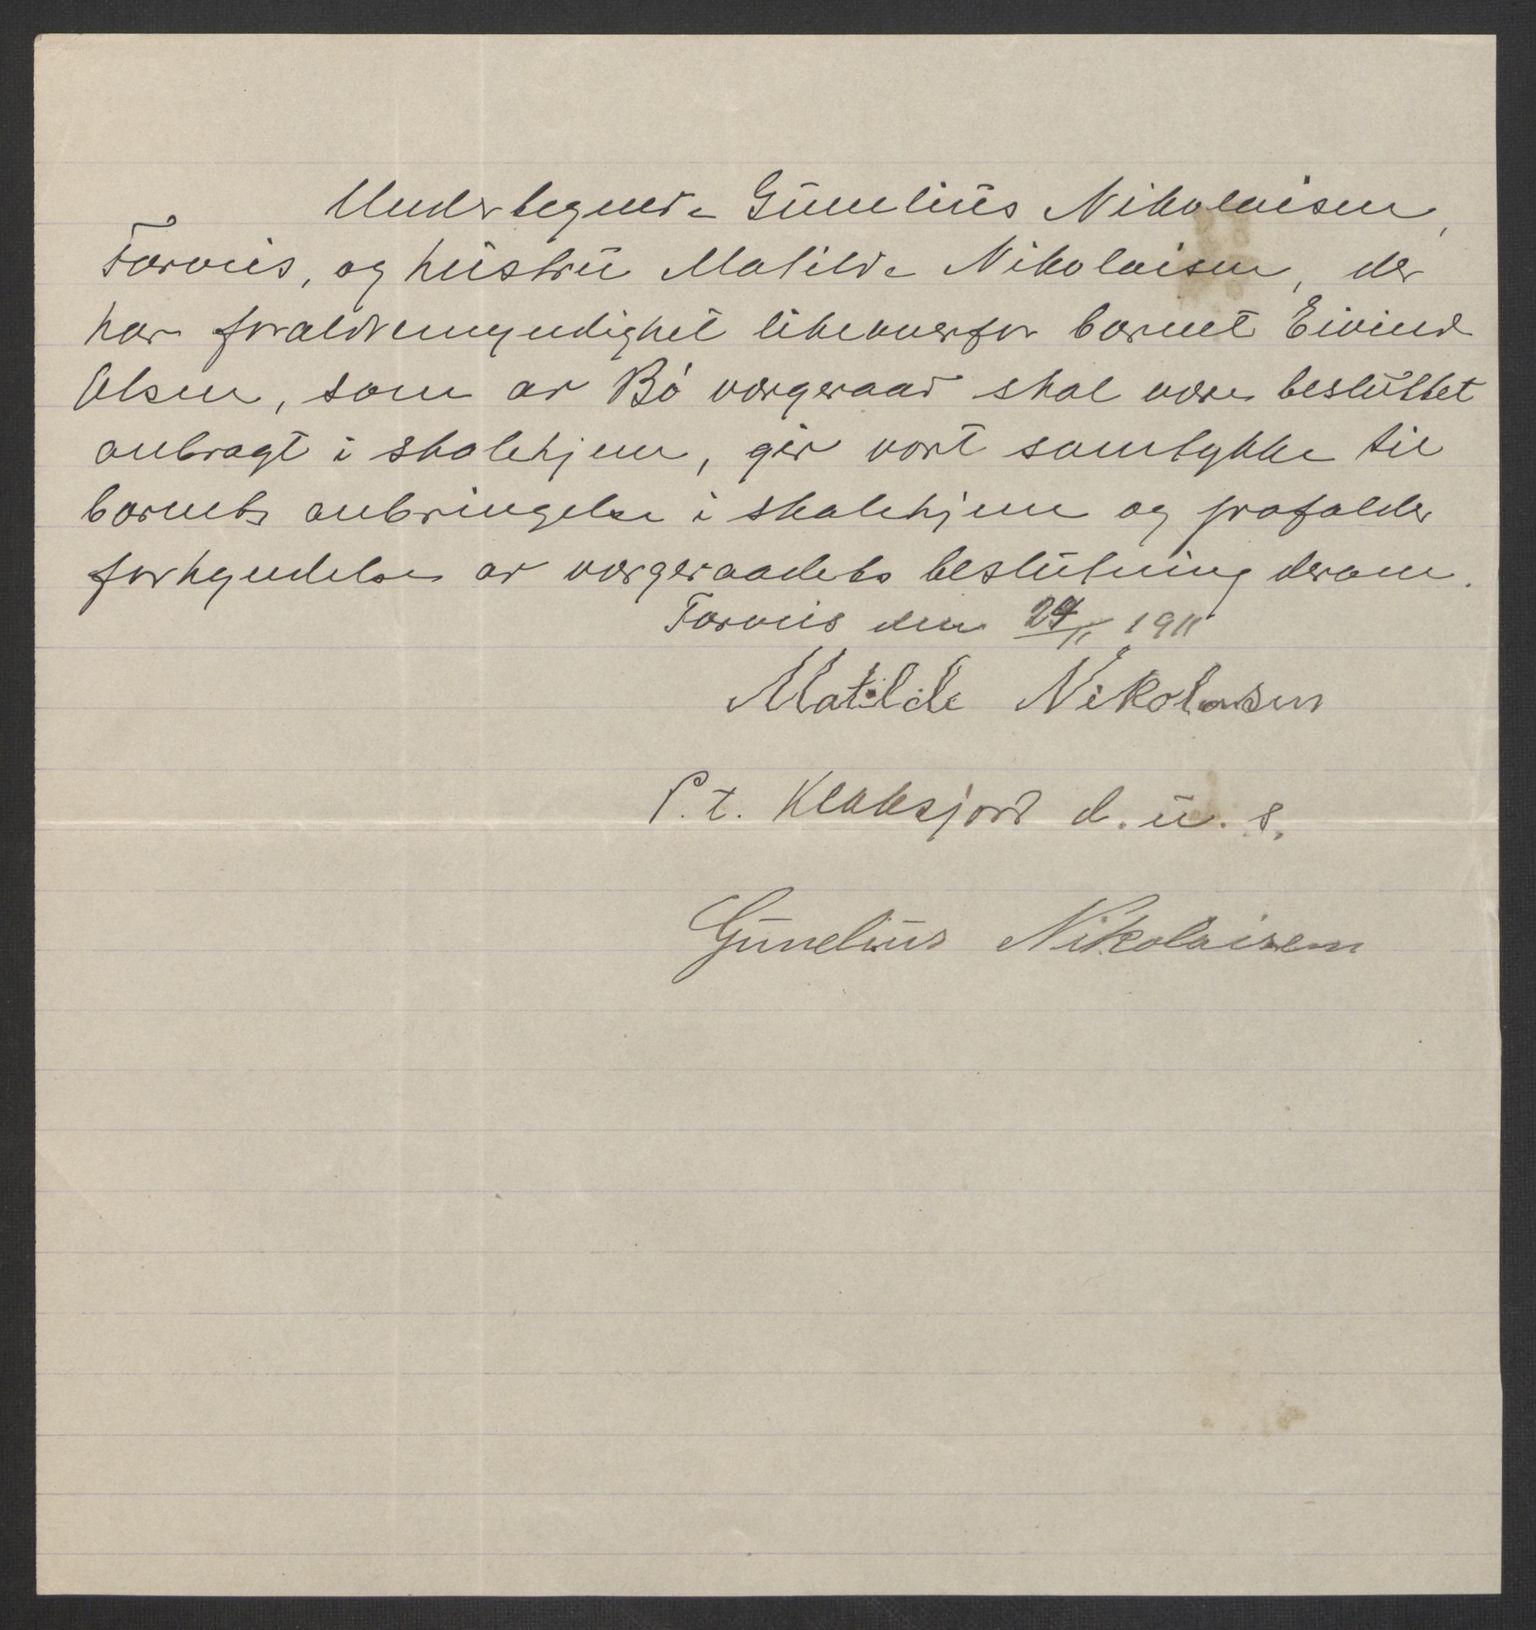 Undertegnede Gunelius Nikolaisen,
Førvens, og hustru Matilde Nikolaisen, der
har forældremyndighet likeoverfor barnet Eivind
Olsen, som av Bø vergeraad skal være besluttet
anbragt i skolehjem, gir vort samtykke til
barnets anbringelse i skolehjem og frafalder
forkyndelse av vergeraadets beslutning derom.
den 24/11 1911
Matilde Nikolaisen
P.t. Klaksjord d. u. s.
Gunelius Nikolaisen